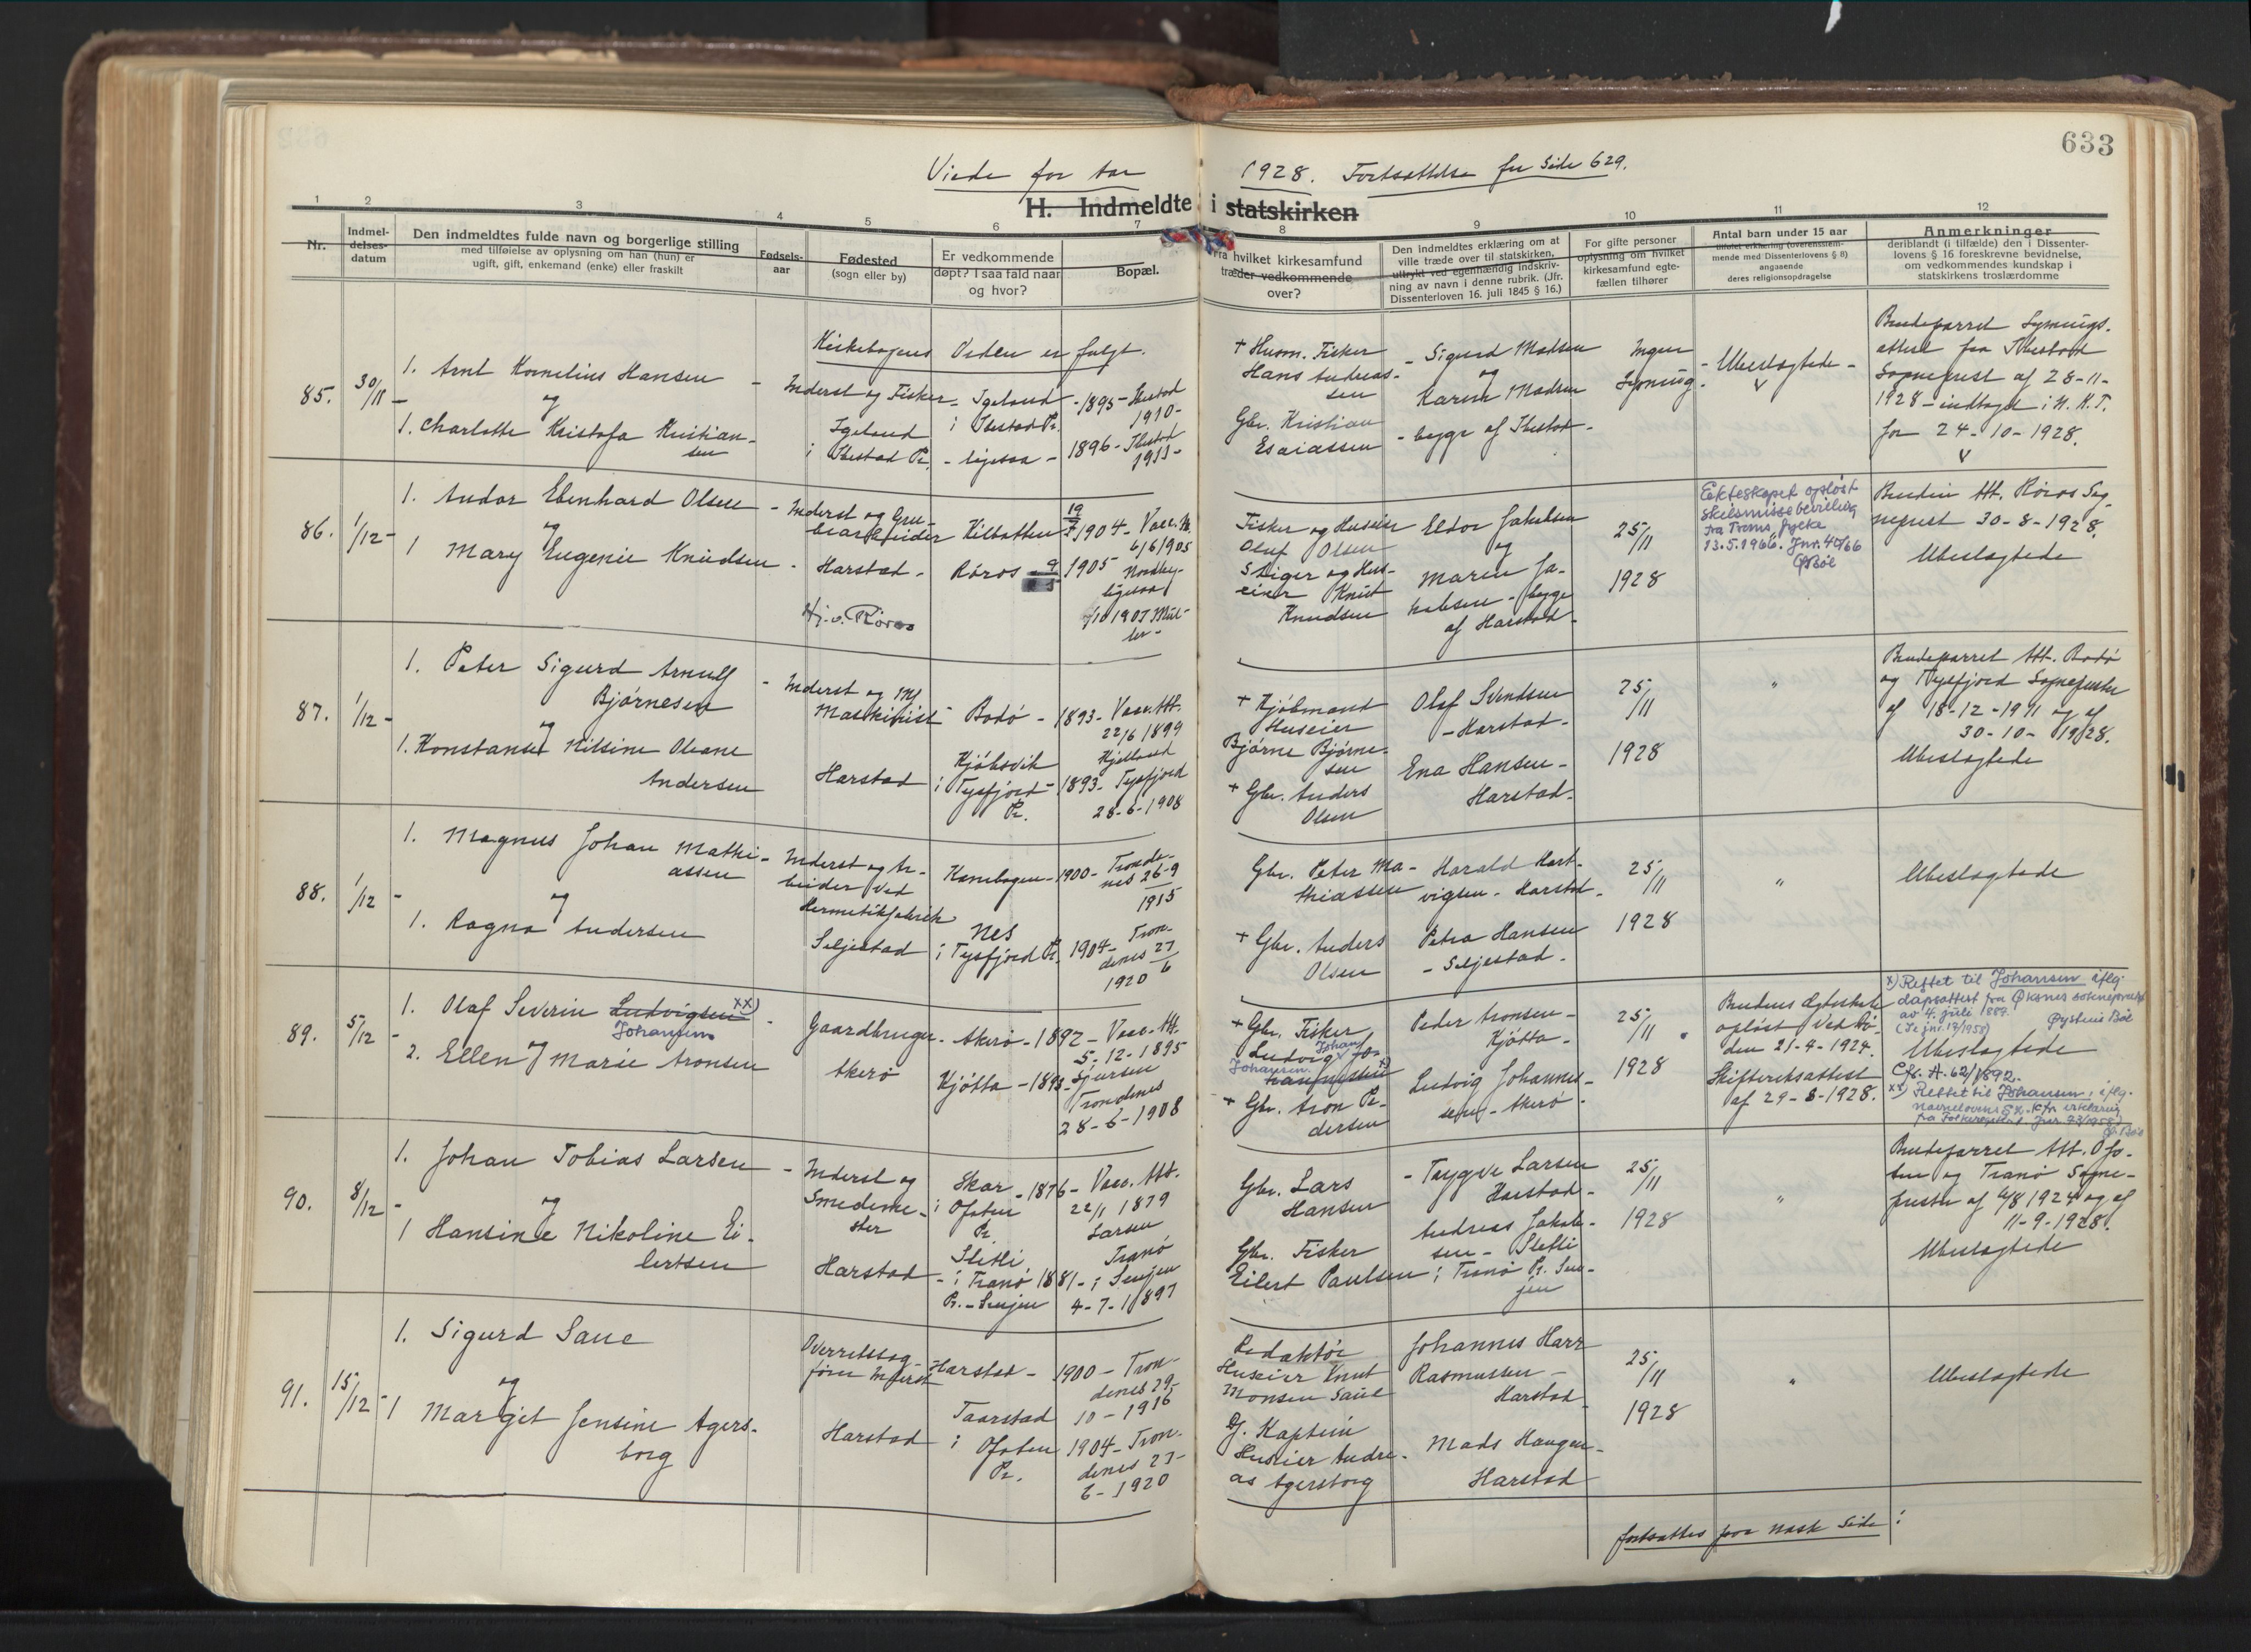 633
Viede for Aar 1928. Fortsættelse fra Side 629.
H. Indmeldte i statskirken
1 2 3 4 5 6 7 8 9 10 11 12
Nr.
Indmel-
delses-
datum
Den indmeldtes fulde navn og borgerlige stilling
med tilføielse av oplysning om han (hun) er
ugift, gift, enkemand (enke) eller fraskilt
Fødsels-
aar
Fødested
(sogn eller by)
Er vedkommende
døpt? I saa fald naar
og hvor?
Bopæl.
Fra hvilket kirkesamfund
træder vedkommende
over?
Den indmeldtes erklæring om at
ville træde over til statskirken,
uttrykt ved egenhændig indskriv-
ning av navn i denne rubrik. (Jfr.
Dissenterloven 16. juli 1845 § 16.)
For gifte personer
oplysning om hvilket
kirkesamfund egte-
fællen tilhører
Antal barn under 15 aar
tilføiet erklæring (overensstem-
mende med Dissenterlovens § 8)
angaaende
deres religionsopdragelse
Anmerkninger
deriblandt (i tilfælde) den i Dissenter-
lovens § 16 foreskrevne bevidnelse,
om vedkommendes kundskap i
statskirkens troslærdomme
Kirkebogens Orden er fulgt.
85. 30/11 -
1. Arnt Kornelius Hansen -
og
1. Charlotte Kristofa Kristian-
sen
Inderst og Fisker -
Igeland
i Ibestad Pr.
Igeland
i Ibestad Pr.
- ligesaa -
- 1895 - Ibestad
1910 -
1896 - Ibestad
1911 -
+ Husm. Fisker
Hans Andreas-
sen
Gbr. Kristian
Esaiassen
- Sigurd Madsen
og
Karen Madsen
- begge af Ibestad -
Ingen
Lysning
- Ubeslægtede -
Brudeparret Lysnings-
attest fra Ibestad
Sogneprest af 28-11-
1928 - indtaget i N. K. T.
for 24-10-1928.
86. 1/12 -
1. Andor Ebenhard Olsen
og
1 Mary Eugenie Knudsen -
- Inderst og Gru-
bearbeider
Harstad -
Hj. v. Røros
Kilbotten
Røros
19/7 1904 - Vacc. At.
6/6 1905
1905
Fisker og Huseier
Oluf Olsen
Stiger og Hus-
eier Knut
Knudsen
Eldor Jakobsen
og
Maren Ja-
kobsen - begge
af Harstad -
25/11
1928
Ekteskapet opløst
skilsmissebevilling
fra Troms fylke
13.5.1966. Jnr. 40/66
Ø Bøe
Bruden Att. Røros Sog-
neprest 30-8-1928.
Ubeslægtede
87. 1/12 -
1. Peter Sigurd Arnulf
Bjørnesen
og
1. Konstanse Nilsine Oleane
Andersen
- Inderst og
Maskinist
Harstad
Bodø -
Kjøbsvik
i Tysfjord
Pr.
1893 - Vacc. Att.
22/6 1899
Kjelland
- 1893 - Tysfjord
28-6-1908
+ Kjøbmand
Huseier
Bjørne Bjørne-
sen
+ Gbr. Anders
Olsen
Olaf Svendsen
- Harstad -
Ena Hansen -
Harstad -
25/11
1928
"
Brudeparret Att. Bodø
og Tysfjord Sogneprester
af 18-12-1911 og af
30-10-1928.
Ubeslægtede
88. 1/12 -
1. Magnus Johan Mathi-
assen
og
1. Ragna Andersen
- Inderst og Ar-
beider ved
Hermetikfabrik
Seljestad
Kanebogen -
Nes
i Tysfjord Pr.
1900 - Tronde-
nes 26-9
1915
1904 - Tron-
denes 27/6
1920
Gbr. Peter Ma-
thiassen
+ Gbr. Anders
Olsen
Harald Hart-
vigsen - Harstad -
Petra Hansen
- Seljestad -
25/11
1928
"
Ubeslægtede
89. 5/12 -
1. Olaf Severin Ludvigsen xx)
Johansen
og
2. Ellen Marie Aronsen
Gaardbruger -
Akerø
Akerø -
Kjøtta -
1892 - Vacc. Att.
5-12-1895
1893 - Sjursen
Trondenes
28-6-1908
+ Gbr. Fisker
Ludvig Johan Jo-
Johansen
hannessen x)
+ Gbr. Aron Pe-
dersen
Peder Aronsen -
Kjøtta -
Ludvig Johannes-
sen - Akerø -
25/11
1928
Brudens Ægteskab
opløst ved Dø-
den 21-4-1924.
Skifteretsattest
af 29-8-1928.
x) Rettet til Johansen iflg.
dåpsattest fra Øksnes sokneprest
av 4. juli 1889.
(Se jnr. 17/1958) Øystein Bøe
Ubeslægtede
Cfr. A. 62/1892.
xx) Rettet til Johansen, iflg.
navnelovens § x, kfr erklæring
fra Folkeregistret. Jnr. 23/1958
Ø. Bøe
90. 8/12 -
1. Johan Tobias Larsen -
og
1 Hansine Nikoline Ei-
lertsen
Inderst og
Smedeme-
ster
Harstad
Skar
i Ofoten
Pr.
Sletli
- i Tranø
Pr. - Senjen
- 1876 - Vacc. Att.
22/1 1879
Larsen
Tranø
1881 - i Senjen
4-7-1897
Gbr. Lars
Hansen
Gbr. Fisker
Eilert Paulsen
- Trygve Larsen
Harstad -
Andreas Jakob-
sen - Sletli
i Tranø Pr. Sen-
jen
25/11
1928
"
Brudeparret Att. Ofo-
ten og Tranø Sogne-
prester af 4/8 1924 og af
11-9-1928.
Ubeslægtede
91. 15/12 -
1. Sigurd Saue
og
1 Margit Jensine Agers-
borg
Overretssag-
fører Inderst
Harstad
Harstad -
Taarstad
i Ofoten
Pr.
1900 - Tron-
denes 29-
10-1916
1904 - Tron-
denes 27-
6-1920
Redaktør
Huseier Knut
Monsen Saue
Gj. Kaptein
Huseier Andre-
as Agersborg
Johannes Harr
Rasmussen -
Harstad
Mads Haugen -
Harstad
25/11
1928
"
Ubeslægtede
fortsættes paa næste Side!